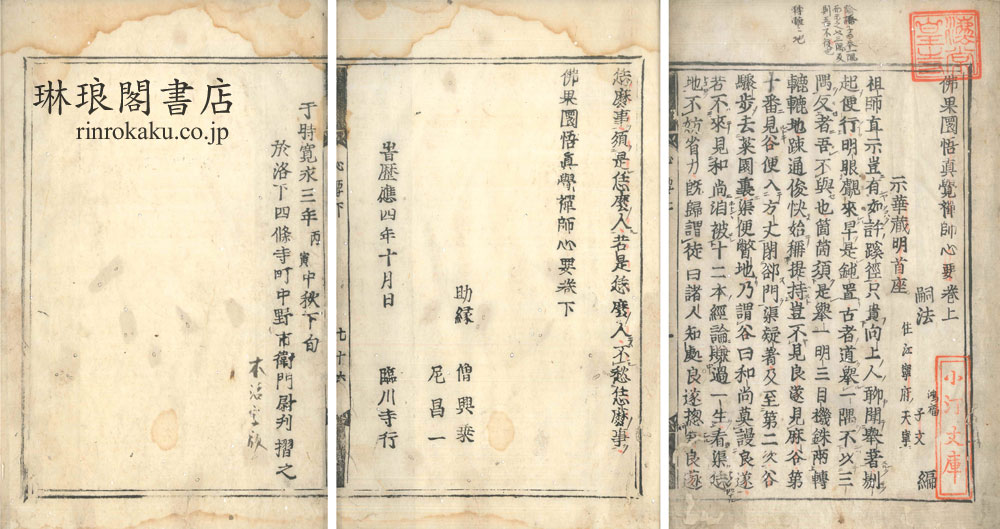 佛果圜悟真覺禪師心要卷上
嗣法 子文 編
鴻福
示華藏明首座
住江寧府天寧
祖師直示豈有如許蹊徑只貴向上人聊聞舉著剔
起便行明眼觀來早是鈍置古者道舉一隅不以三
隅反者吾不與也箇箇須是舉一明三目機銖兩轉
轆轆地疎通俊快始稱提持豈不見良遂見麻谷第
十番見谷便入方丈閉却門渠疑著及至第二次谷
驟步去菜園裏渠便瞥地乃謂谷曰和尚莫謾良遂
若不來見和尚洎被十二本經論賺過一生看渠恁
地不妨省力既歸謂徒曰諸人知處良遂揔知良遂
小汀文庫
恁麼事須是恁麼人若是恁麼人不愁恁麼事
佛果圜悟真覺禪師心要卷下
助緣 僧興裴
尼昌一
旹曆應四年十月日 臨川寺行
九十六
心要下
于時寬永三年丙寅中秋下旬
於洛下四條寺町中野市衛門尉判摺之
木活字版
琳琅閣書店
rinrokaku.co.jp